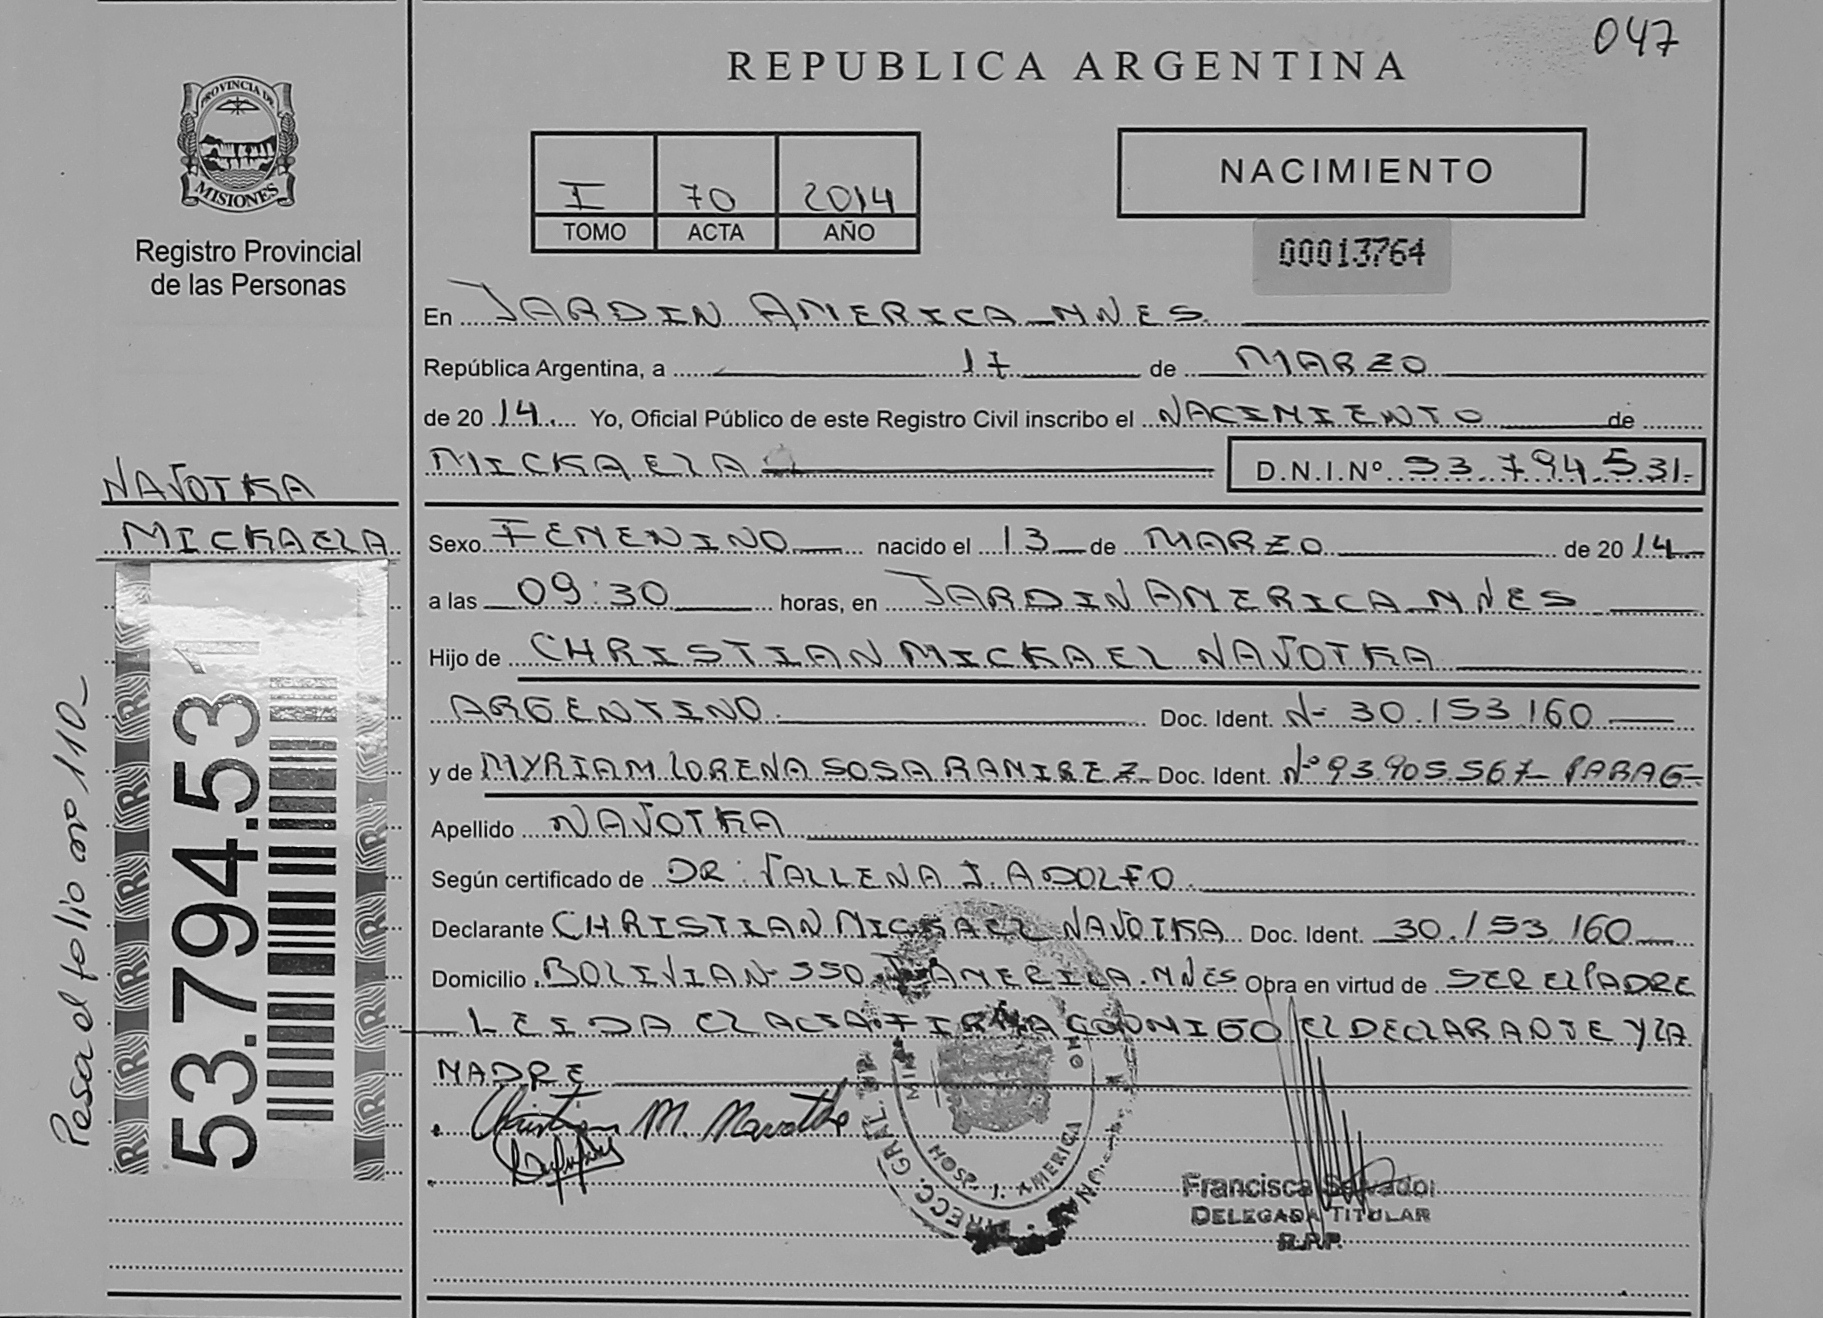 047
REPUBLICA ARGENTINA
PROVINCIA DE
MISIONES
Registro Provincial
de las Personas
I 70 2014
TOMO ACTA AÑO
NACIMIENTO
00013764
En JARDIN AMERICA MNES.
República Argentina, a 17 de MARZO
de 2014 Yo, Oficial Público de este Registro Civil inscribo el NACIMIENTO de
MICKAELA D.N.I.Nº 53.794.531-
NAVOTKA
MICKAELA
Sexo FEMENINO nacido el 13 de MARZO de 2014
a las 09:30 horas, en JARDIN AMERICA MNES
Hijo de CHRISTIAN MICKAEL NAVOTKA
ARGENTINO Doc. Ident. Nº 30.153.160
y de MYRIAM LORENA SOSA RAMIREZ Doc. Ident. Nº 93.905.567- PARAG-
Apellido NAVOTKA
Según certificado de DR. VALLENA J. ADOLFO
Declarante CHRISTIAN MICKAEL NAVOTKA Doc. Ident. 30.153.160
Domicilio BOLIVIA Nº 550 J. AMERICA. MNES Obra en virtud de SER EL PADRE
LEIDA EL ACTA FIRMA CONMIGO EL DECLARANTE Y LA
MADRE
Christian M.
Francisca Salvador
DELEGADA TITULAR
R.P.P.
HOSP. J. AMERICA
53.794.531
Pasa al folio nº 110-